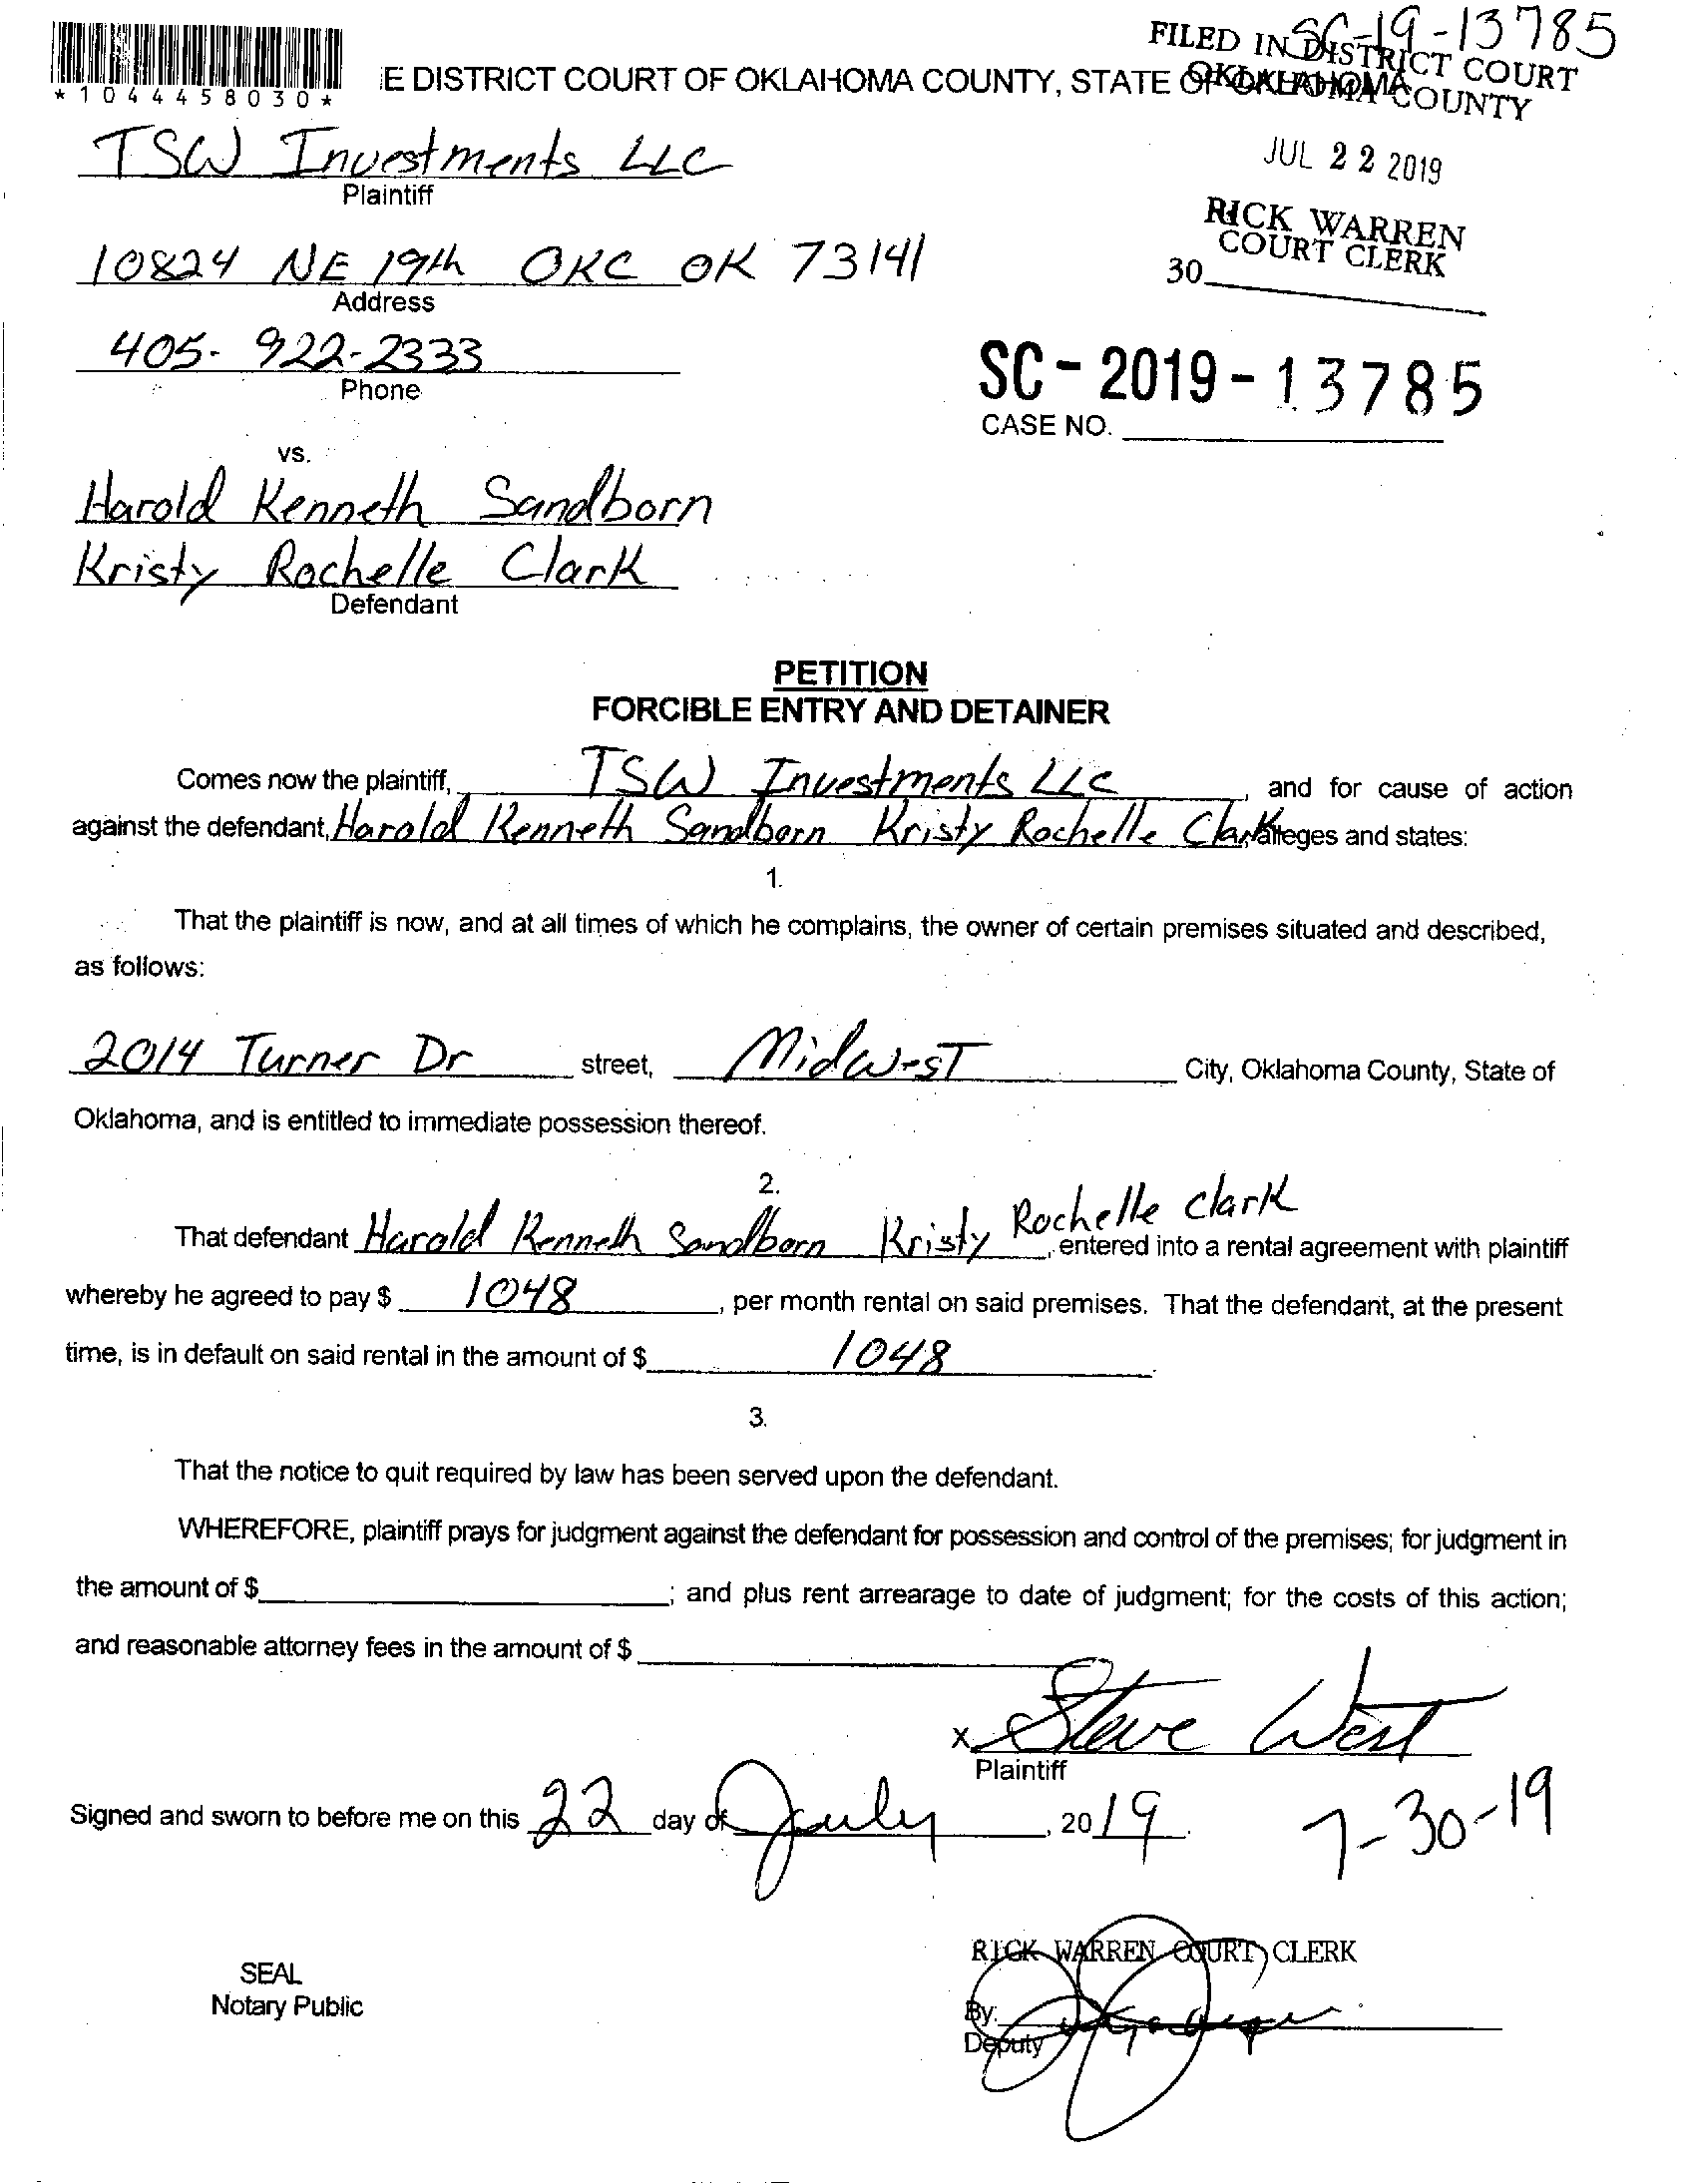 SC-19-13785
FILED IN DISTRICT COURT
OKLAHOMA COUNTY
*1044458030*
E DISTRICT COURT OF OKLAHOMA COUNTY, STATE OF OKLAHOMA
JUL 22 2019
RICK WARREN
COURT CLERK
30
TSW Investments LLC
Plaintiff
10824 NE 19th OKC OK 73141
Address
405-922-2333
Phone
SC-2019-13785
CASE NO.
vs.
Harold Kenneth Sandborn
Kristy Rochelle Clark
Defendant
PETITION
FORCIBLE ENTRY AND DETAINER
Comes now the plaintiff, TSW Investments LLC, and for cause of action
against the defendant, Harold Kenneth Sandborn Kristy Rochelle Clark alleges and states:
1.
That the plaintiff is now, and at all times of which he complains, the owner of certain premises situated and described,
as follows:
2014 Turner Dr street, Midwest City, Oklahoma County, State of
Oklahoma, and is entitled to immediate possession thereof.
2.
That defendant Harold Kenneth Sandborn Kristy Rochelle Clark, entered into a rental agreement with plaintiff
whereby he agreed to pay $ 1048, per month rental on said premises. That the defendant, at the present
time, is in default on said rental in the amount of $ 1048.
3.
That the notice to quit required by law has been served upon the defendant.
WHEREFORE, plaintiff prays for judgment against the defendant for possession and control of the premises; for judgment in
the amount of $ ; and plus rent arrearage to date of judgment; for the costs of this action;
and reasonable attorney fees in the amount of $
x Steve West
Plaintiff
Signed and sworn to before me on this 22 day of July, 2019.
7-30-19
RICK WARREN COURT CLERK
SEAL
Notary Public
By:
Deputy